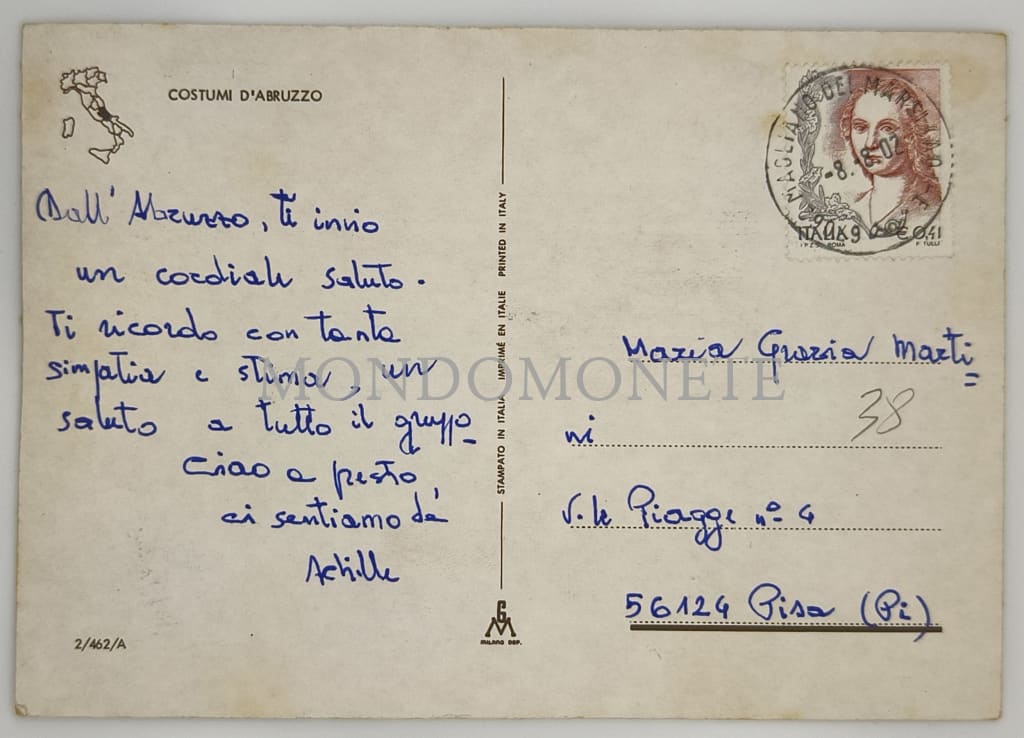 COSTUMI D'ABRUZZO
Dall' Abruzzo, ti invio
un cordiale saluto.
Ti ricordo con tanta
simpatia e stima, un
saluto a tutto il gruppo
Ciao a presto
ci sentiamo da
Achille
2/462/A
STAMPATO IN ITALIA IMPRIMÉ EN ITALIE PRINTED IN ITALY
GM
MILANO DEP.
MAGLIANO DEI MARSI
-8.-8-02
ITALIA € 0,41
I.P.Z.S. ROMA F. TULLI
Maria Grazia Marti=
ni
38
V.le Piagge n° 4
56124 Pisa (Pi)
MONDOMONETE